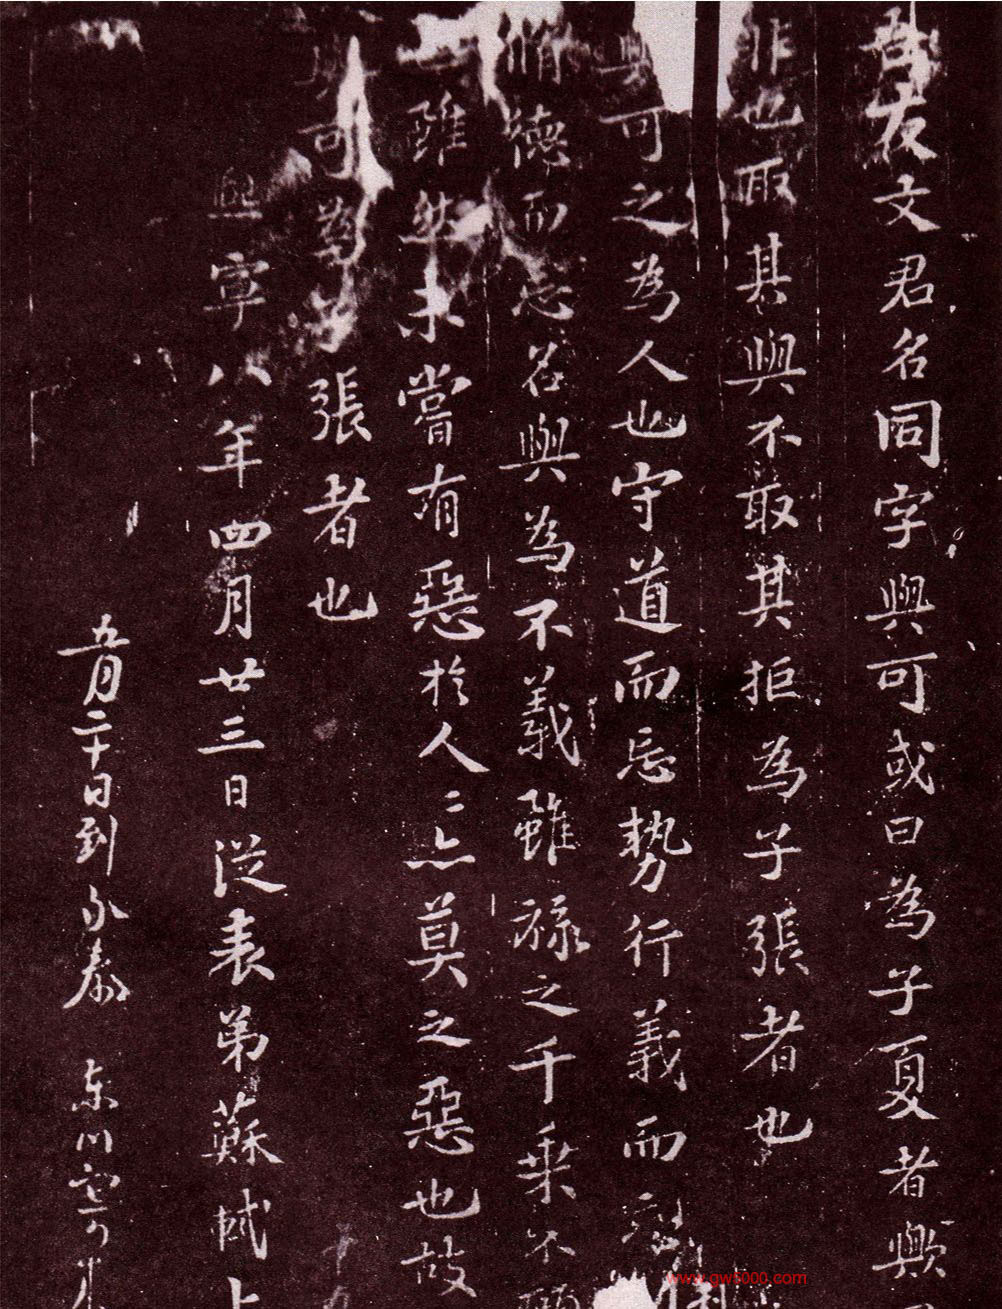 吾友文君名同字與可或曰為子夏者歟
非也取其與不取其拒為子張者也
與可之為人也守道而忘勢行義而忘利
脩德而忘名與為不義雖祿之千乘不顧
也雖然未嘗有惡於人々亦莫之惡也故
與可為子張者也
熙寧八年四月廿三日從表弟蘇軾上
五月二十日到永泰 東川
www.gw5000.com